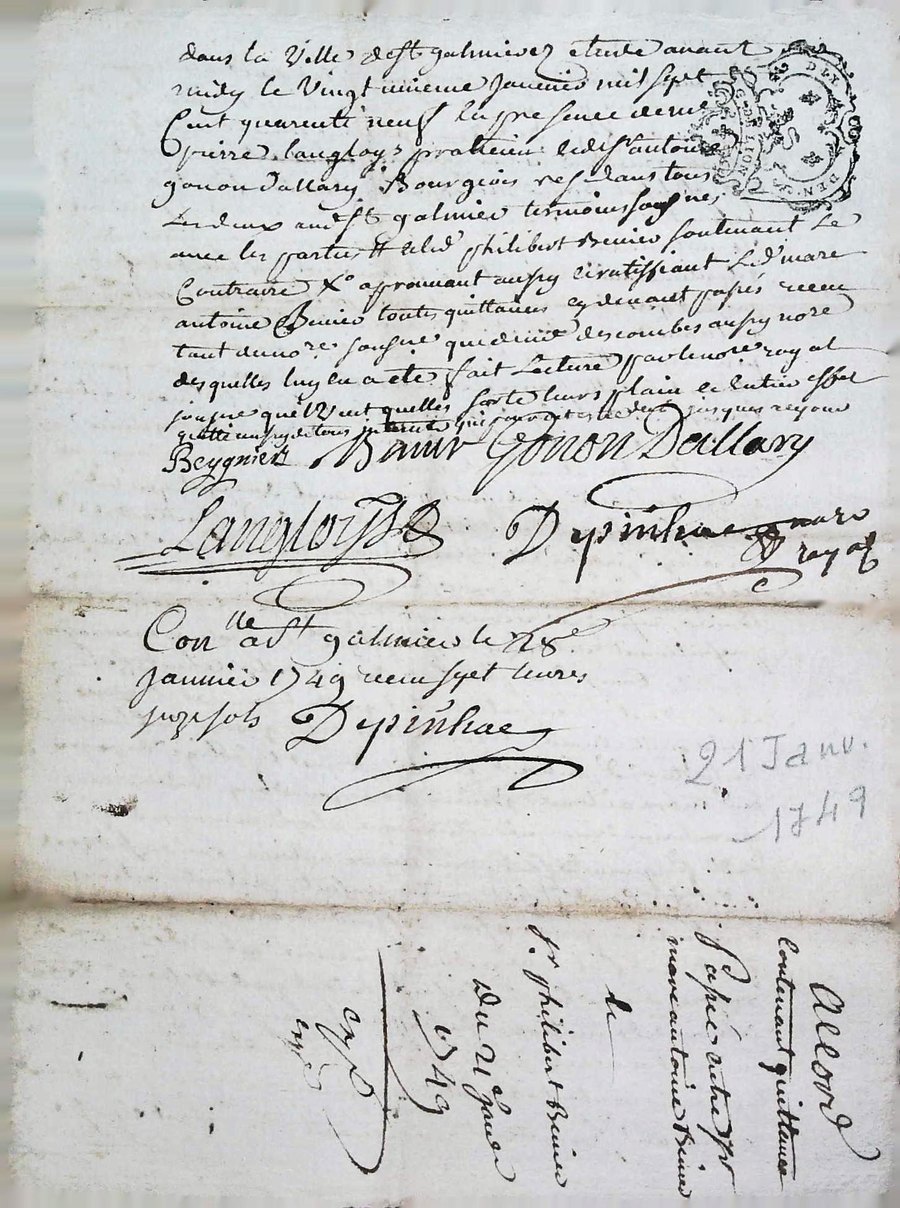 dans la Ville de St galmier etude avant
midy le Vingt unieme Janvier mil sept
Cent quarente neuf En presence de me
pierre langloys praticien et de Sr antoine
gonon Dallary Bourgeois res dans tous
Les deux aud St galmier temoins sousnes
avec les parties et led philibert Benier soutenant le
Contraire approuvant aussy et ratiffiant Led marc
antoine Benier toutes quittances cy devant passés receu
tant du no re sousne que de me descombes aussy no re
desquelles luy en a été fait Lecture par le no re royal
sousne quil Veut quelles sorte leurs plain et Entier effet
jusques a ce jour
Beygnier Benier Gonon Dallary
Langloys Depinhac no re
royal
Con lle a St galmier le 28e
Janvier 1749 receu sept livres
sols Depinhac
21 Janv.
1749
Accord
Contenant quittance
Passé entre sr
marc antoine Benier
&
sr philibert Benier
Du 21e Janer
1749
expé
expé